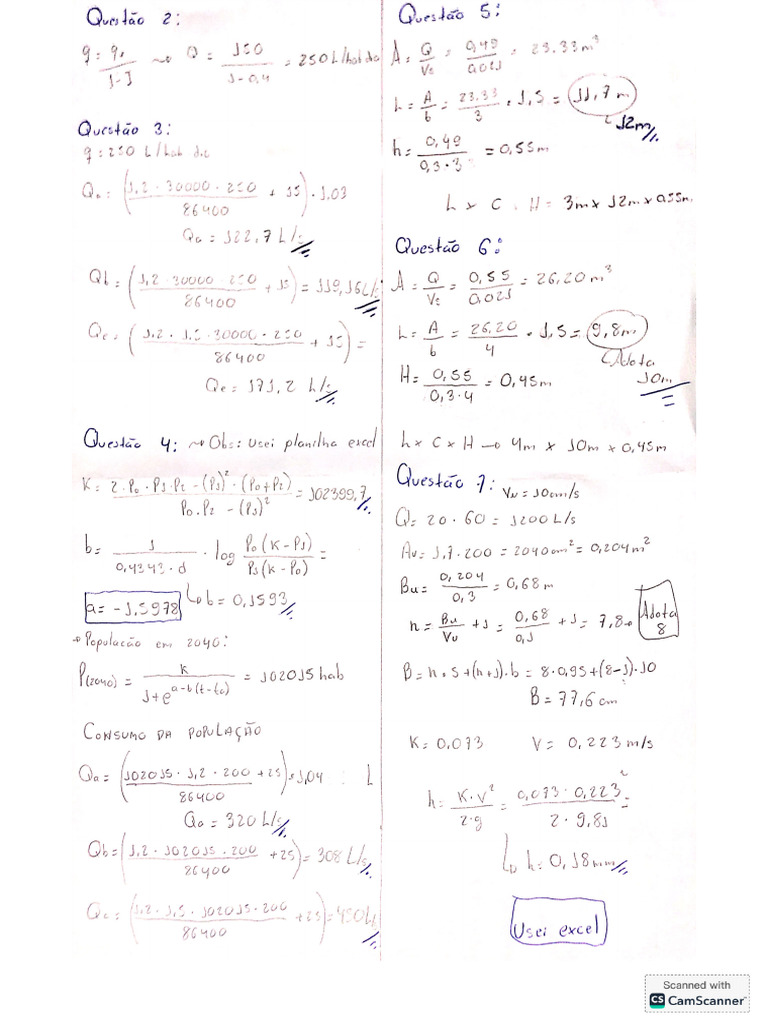 Questão 2:
q = qₑ / 1-I ~> Q = 150 / 1-0,4 = 250 L/hab dia
Questão 3:
q = 250 L/hab dia
Qa = (1,2 · 30000 · 250 / 86400 + 15) · 1,03
Qa = 122,7 L/s
Qb = (1,2 · 30000 · 250 / 86400 + 15) = 119,16 L/s
Qc = (1,2 · 1,5 · 30000 · 250 / 86400 + 15) =
Qc = 171,2 L/s
Questão 4: ~> Obs: Usei planilha excel
K = 2·P₀·P₁·P₂ - (P₁)²·(P₀+P₂) / P₀·P₂ - (P₁)² = 102399,7
b = 1 / 0,4343·d · log P₀(K-P₁) / P₁(K-P₀) =
a = -1,5978
b = 0,1593
População em 2040:
P(2040) = K / 1+e^(a-b(t-t₀)) = 102015 hab
CONSUMO DA POPULAÇÃO
Qa = (102015 · 1,2 · 200 / 86400 + 25) · 1,04 =
Qa = 320 L/s
Qb = (1,2 · 102015 · 200 / 86400 + 25) = 308 L/s
Qc = (1,2 · 1,5 · 102015 · 200 / 86400 + 25) = 450 L/s
Questão 5:
A = Q/Vs = 0,49 / 0,021 = 23.33 m³
L = A/b = 23.33 / 3 · 1,5 = 11,7 m
12m
h = 0,49 / 0,3·3 = 0,55m
L x C x H = 3m x 12m x 0,55m
Questão 6:
A = Q/Vs = 0,55 / 0,021 = 26,20 m³
L = A/b = 26,20 / 4 · 1,5 = 9,8m
Adota
10m
H = 0,55 / 0,3·4 = 0,45m
L x C x H -> 4m x 10m x 0,45m
Questão 7: Vu = 10cm/s
Q = 20 · 60 = 1200 L/s
Au = 1,7 · 200 = 2040 cm² = 0,204 m²
Bu = 0,204 / 0,3 = 0,68 m
n = Bu/Vu + 1 = 0,68 / 0,1 + 1 = 7,8 -> Adota 8
B = n · s + (n+1) · b = 8 · 0,95 + (8-1) · 10
B = 77,6 cm
K = 0,073 V = 0,223 m/s
h = K·V² / 2·g = 0,073 · 0,223² / 2 · 9,81 =
h = 0,18mm
Usei excel
Scanned with
CS CamScanner